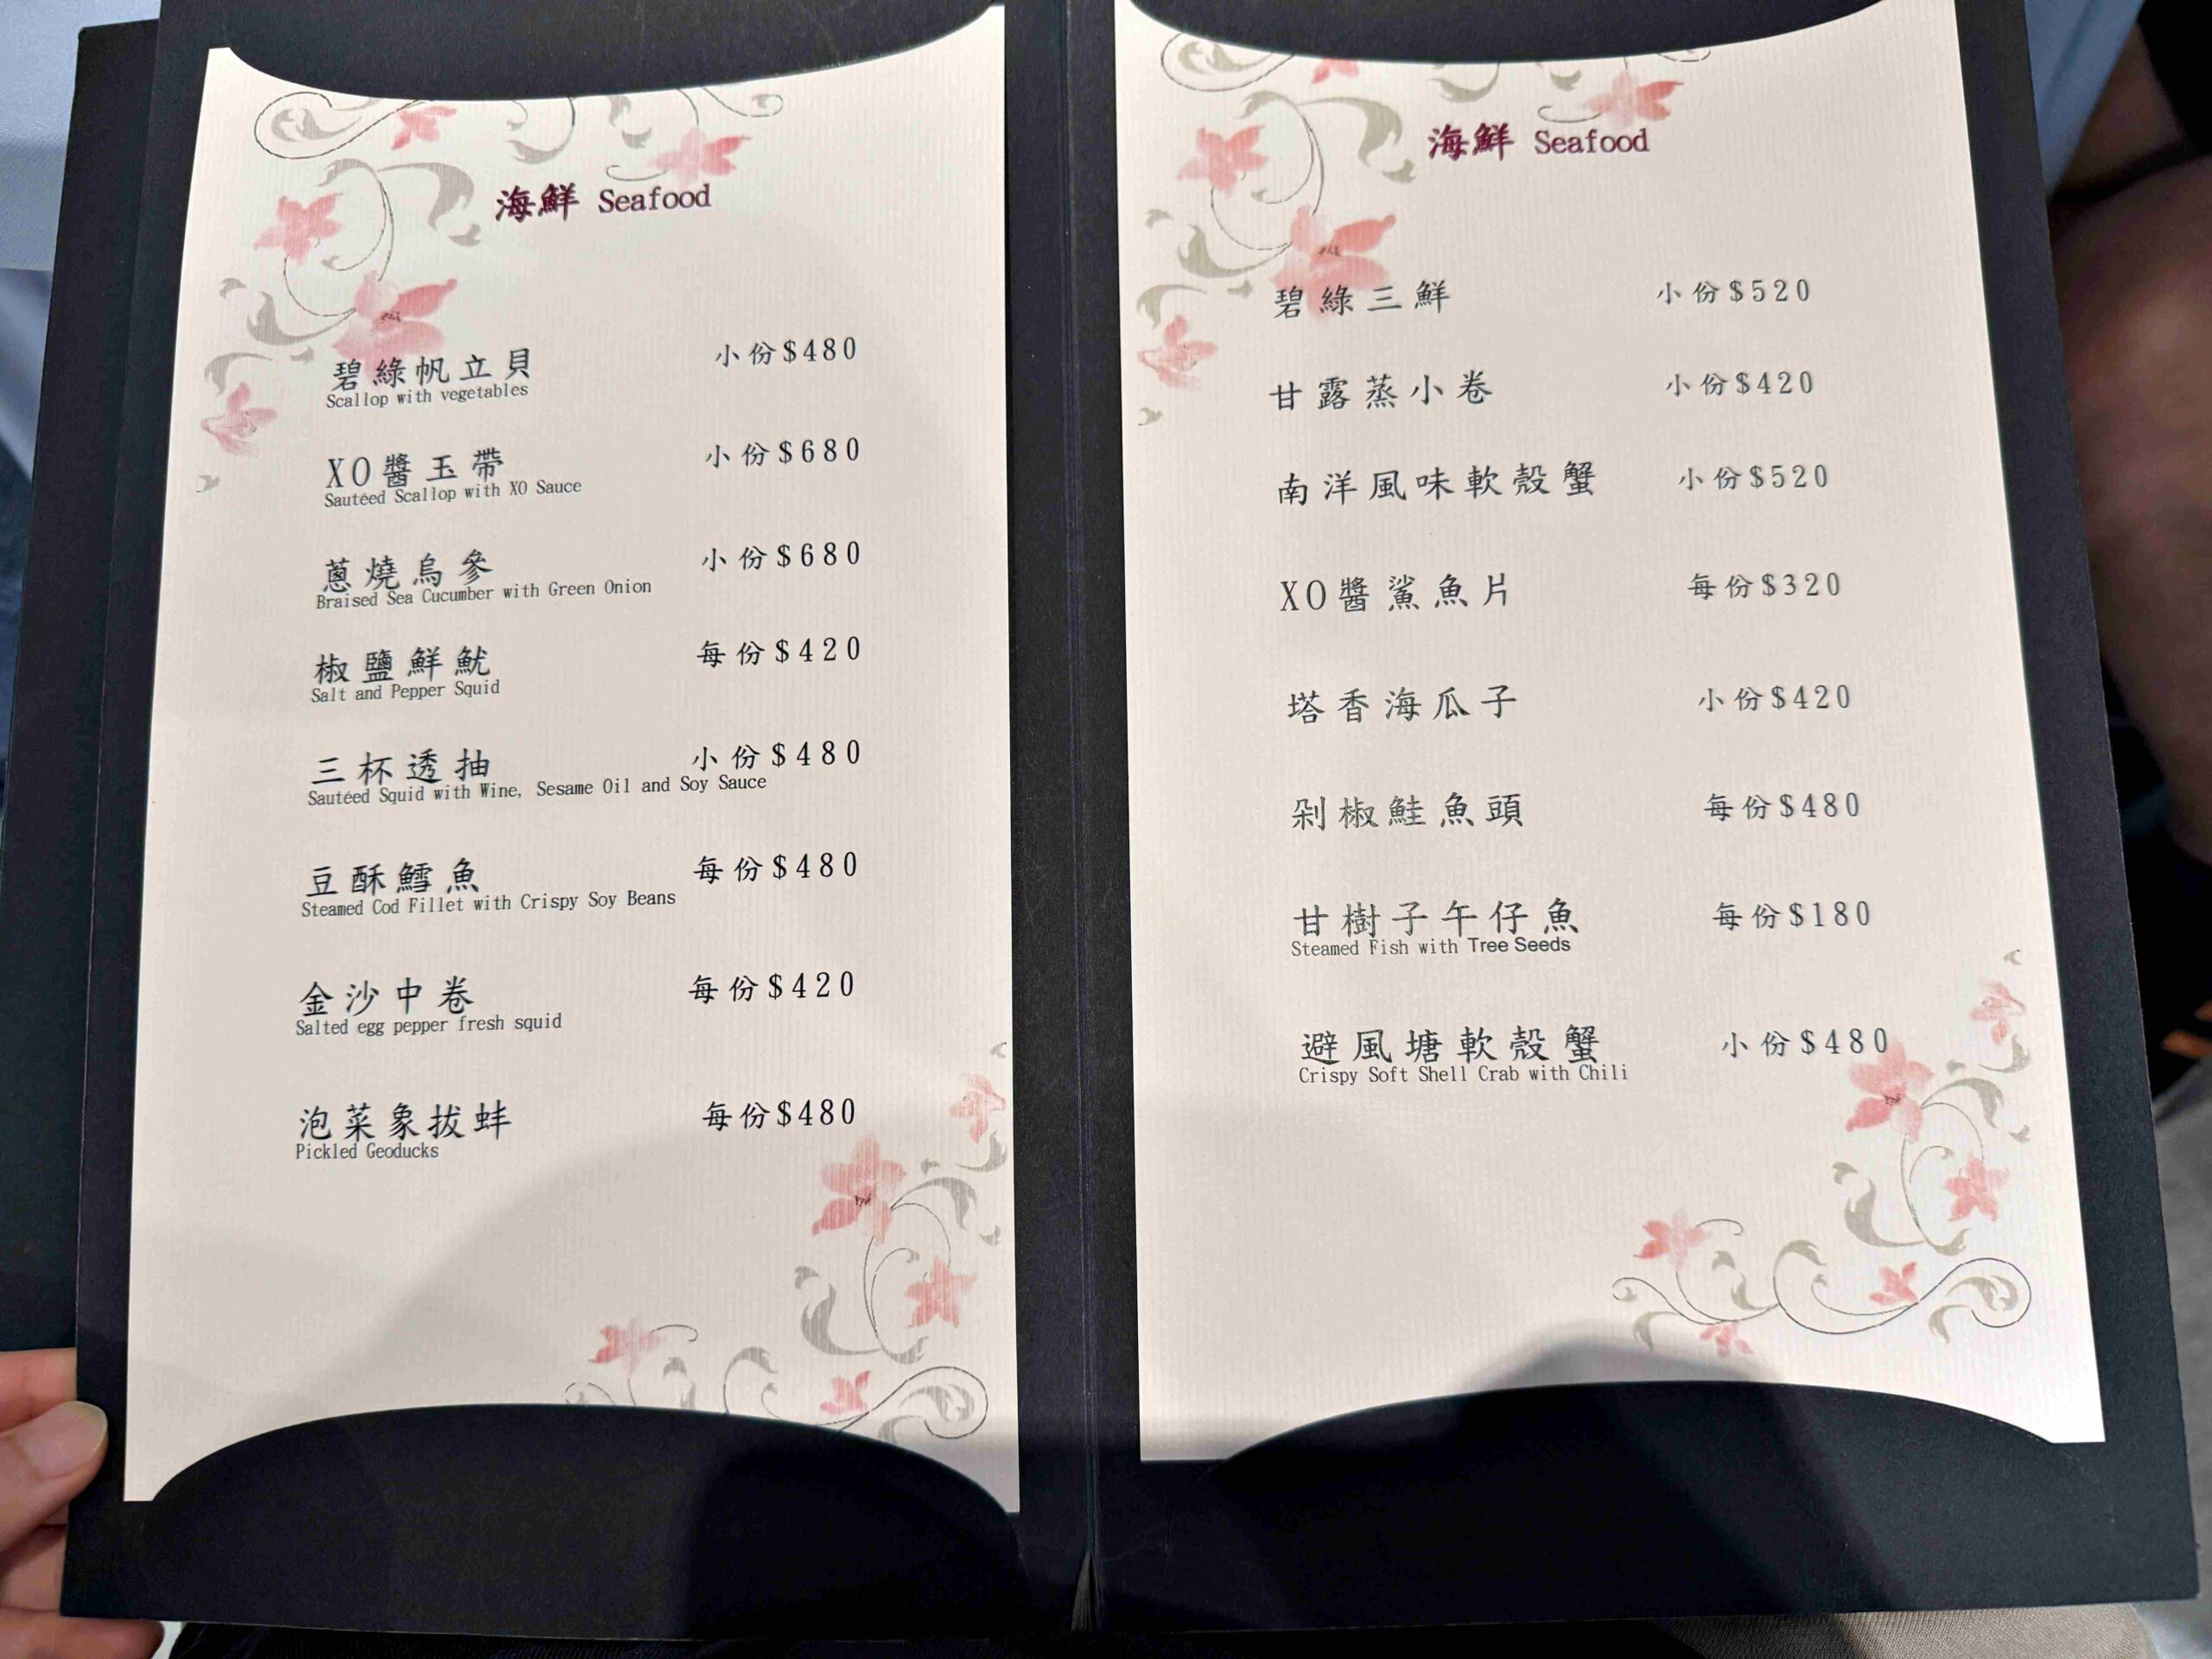 海鮮 Seafood
碧綠帆立貝 小份$480
Scallop with vegetables
XO醬玉帶 小份$680
Sautéed Scallop with XO Sauce
蔥燒烏參 小份$680
Braised Sea Cucumber with Green Onion
椒鹽鮮魷 每份$420
Salt and Pepper Squid
三杯透抽 小份$480
Sautéed Squid with Wine, Sesame Oil and Soy Sauce
豆酥鱈魚 每份$480
Steamed Cod Fillet with Crispy Soy Beans
金沙中卷 每份$420
Salted egg pepper fresh squid
泡菜象拔蚌 每份$480
Pickled Geoducks
海鮮 Seafood
碧綠三鮮 小份$520
甘露蒸小卷 小份$420
南洋風味軟殼蟹 小份$520
XO醬鯊魚片 每份$320
塔香海瓜子 小份$420
剁椒鮭魚頭 每份$480
甘樹子午仔魚 每份$180
Steamed Fish with Tree Seeds
避風塘軟殼蟹 小份$480
Crispy Soft Shell Crab with Chili